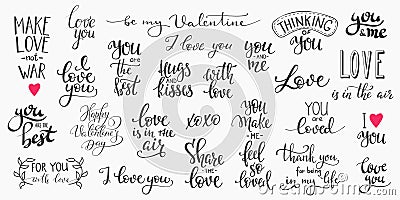 MAKE
LOVE
-not-
WAR
love
you
be my Valentine
THINKING
OF
YOU
you
& me
I
love
you
you
ARE THE
best
I love you
Hugs
AND
kisses
with
love
you
AND
me
Love
LOVE
is in the air
you
ARE THE
best
Happy
Valentine's
Day
love
is in the
air
xoxo
you
Make
-ME-
feel
so
loved
YOU
are
loved
I
YOU
FOR YOU
with love
I love you
Share
-the-
love
Thank you
for being
in my life
love
you